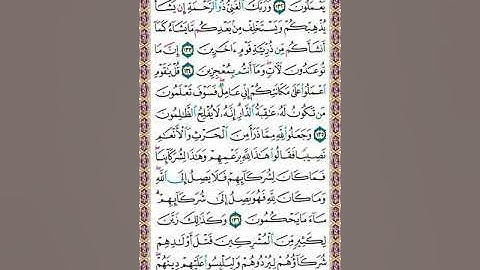 يَعْمَلُونَ ١٣٢ وَرَبُّكَ ٱلْغَنِيُّ ذُو ٱلرَّحْمَةِ إِن يَشَأْ
يُذْهِبْكُمْ وَيَسْتَخْلِفْ مِنۢ بَعْدِكُم مَّا يَشَآءُ كَمَآ
أَنشَأَكُم مِّن ذُرِّيَّةِ قَوْمٍ ءَاخَرِينَ ١٣٣ إِنَّ مَا
تُوعَدُونَ لَأٓتٍ وَمَآ أَنتُم بِمُعْجِزِينَ ١٣٤ قُلْ يَٰقَوْمِ
ٱعْمَلُوا۟ عَلَىٰ مَكَانَتِكُمْ إِنِّي عَامِلٌ فَسَوْفَ تَعْلَمُونَ
مَن تَكُونُ لَهُۥ عَٰقِبَةُ ٱلدَّارِ إِنَّهُۥ لَا يُفْلِحُ ٱلظَّٰلِمُونَ
١٣٥ وَجَعَلُوا۟ لِلَّهِ مِمَّا ذَرَأَ مِنَ ٱلْحَرْثِ وَٱلْأَنْعَٰمِ
نَصِيبًا فَقَالُوا۟ هَٰذَا لِلَّهِ بِزَعْمِهِمْ وَهَٰذَا لِشُرَكَآئِنَا
فَمَا كَانَ لِشُرَكَآئِهِمْ فَلَا يَصِلُ إِلَى ٱللَّهِ
وَمَا كَانَ لِلَّهِ فَهُوَ يَصِلُ إِلَىٰ شُرَكَآئِهِمْ
سَآءَ مَا يَحْكُمُونَ ١٣٦ وَكَذَٰلِكَ زَيَّنَ
لِكَثِيرٍ مِّنَ ٱلْمُشْرِكِينَ قَتْلَ أَوْلَٰدِهِمْ
شُرَكَآؤُهُمْ لِيُرْدُوهُمْ وَلِيَلْبِسُوا۟ عَلَيْهِمْ دِينَهُمْ